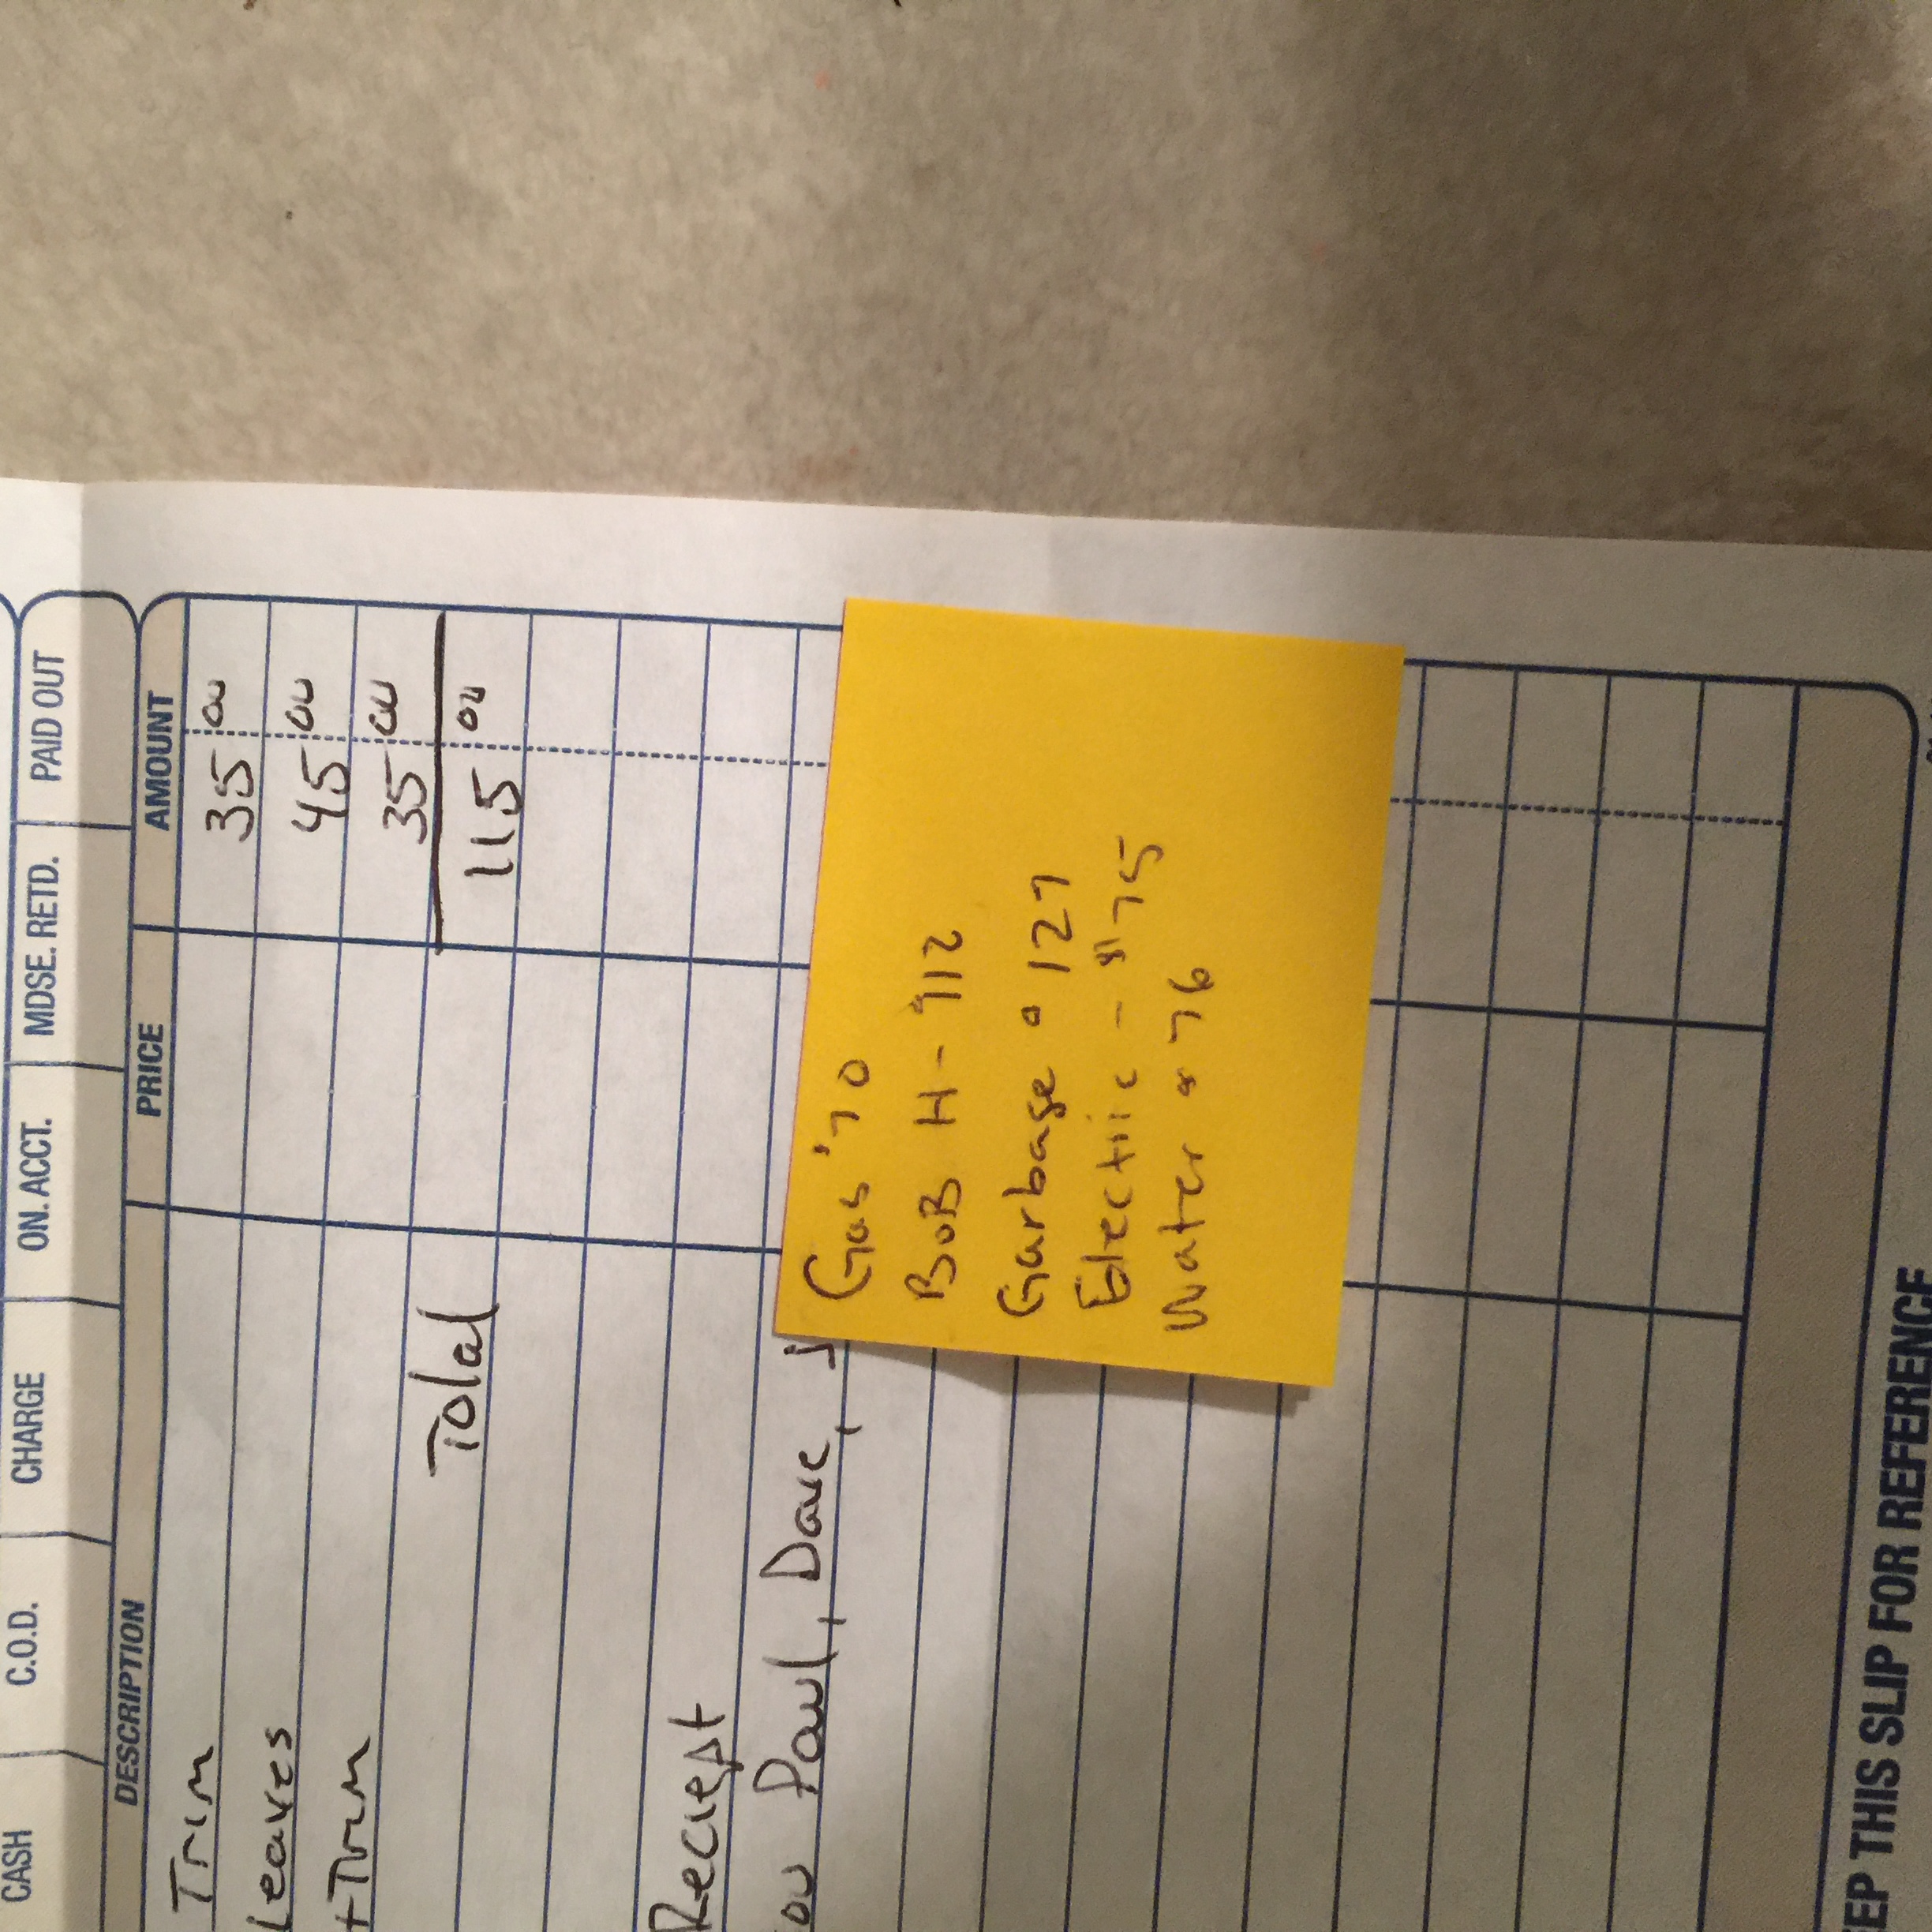 CASH C.O.D. CHARGE ON. ACCT. MDSE. RETD. PAID OUT
DESCRIPTION PRICE AMOUNT
Trim 35 00
Leaves 45 00
+Trim 35 00
Total 115 00
Reciept
ou Paul, Dave,
Gas $70
BoB H- $112
Garbage $127
Electric - $175
Water $76
EEP THIS SLIP FOR REFERENCE